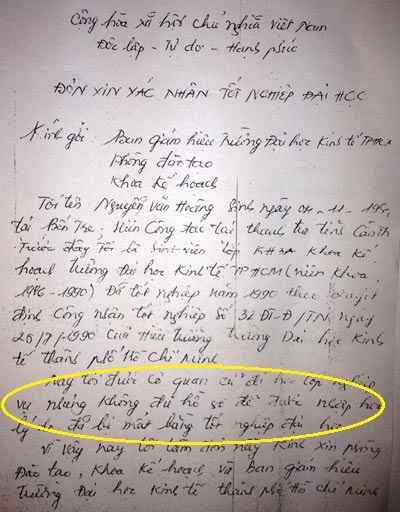 Cộng hòa xã hội chủ nghĩa Việt Nam
Độc lập - Tự do - Hạnh phúc
ĐƠN XIN XÁC NHẬN TỐT NGHIỆP ĐẠI HỌC
Kính gởi: Ban giám hiệu Trường Đại học Kinh tế TPHCM
Phòng đào tạo
Khoa Kế hoạch
Tôi tên: Nguyễn Văn Hoàng Sinh ngày 04-11-
tại Bến Tre, hiện công tác tại thanh tra tỉnh Cần Th
Trước đây Tôi là sinh viên lớp KH3A Khoa Kế
hoạch Trường Đại học Kinh tế TPHCM (niên khóa
1986-1990) Đã tốt nghiệp năm 1990 theo quyết
định Công nhận tốt nghiệp số 32 ĐT-Đ/TN ngày
20/7/1990 của Hiệu trưởng Trường Đại học Kinh
tế thành phố Hồ Chí Minh
Nay tôi được cơ quan cử đi học lớp nghiệp
vụ nhưng không đủ hồ sơ để được nhập học
lý do đã bị mất bằng tốt nghiệp đại học
Vì vậy nay tôi làm đơn này Kính xin phòng
Đào tạo, Khoa Kế hoạch và ban giám hiệu
Trường Đại học Kinh tế thành phố Hồ Chí Minh